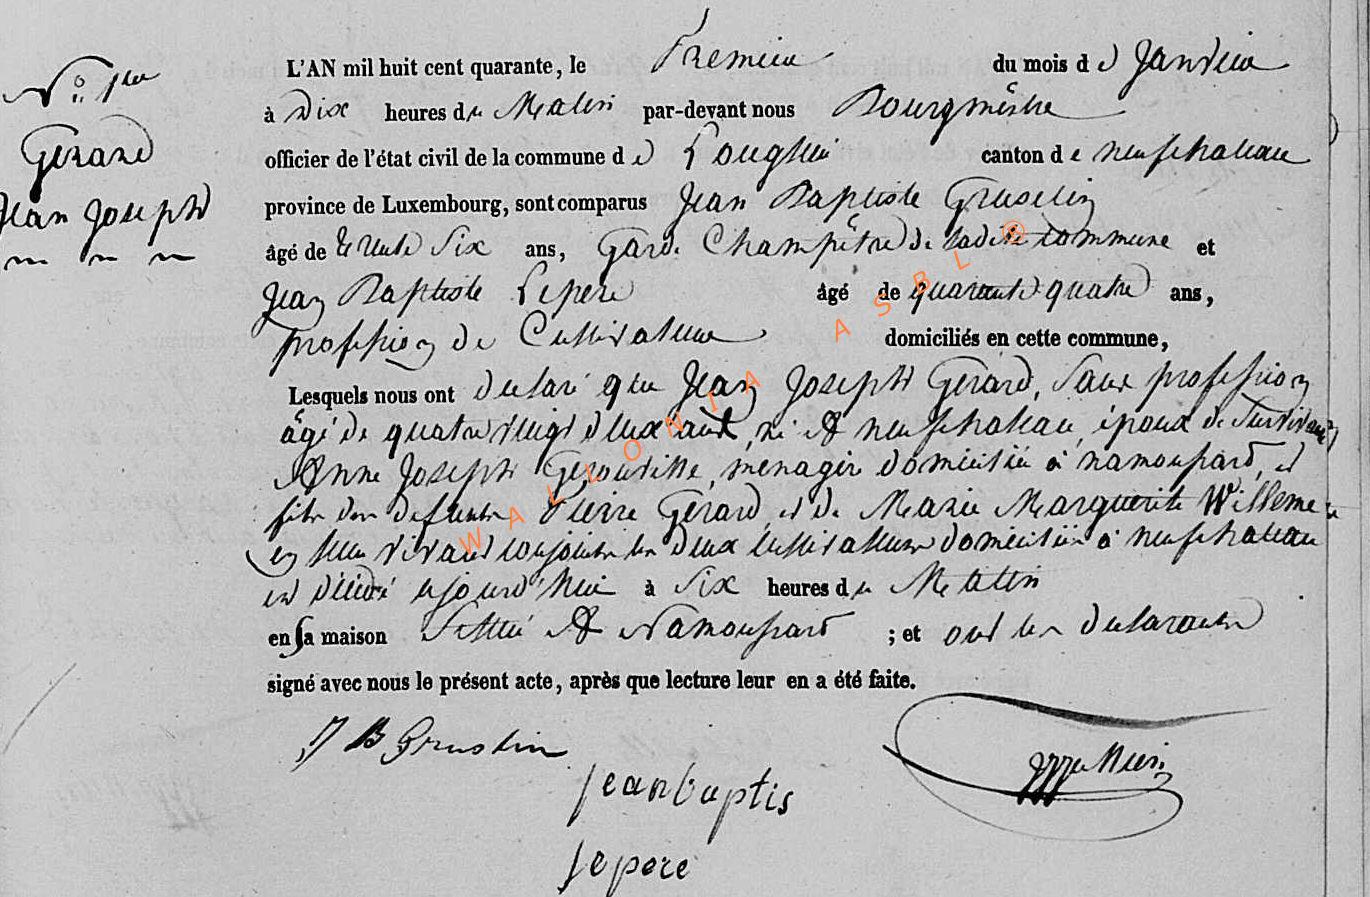 N.º 1er
Gérard
Jean Joseph
L'AN mil huit cent quarante, le Premier du mois d e Janvier
à Dix heures du Matin par-devant nous Bourgmêstre
officier de l'état civil de la commune d e Longlier canton d e neufchateau
province de Luxembourg, sont comparus Jean Baptiste Gruselin
âgé de trente Six ans, Garde Champêtre de ladite commune et
Jean Baptiste Lepere âgé de quarante quatre ans,
profession de Cultivateur domiciliés en cette commune,
Lesquels nous ont declaré que Jean Joseph Gérard, Sans profession
âgé de quatre vingt deux ans, né à neufchateau, époux de Survivante
Anne Joseph menagere domiciliée à namoussard, et
fils des defunts Pierre Gérard et de Marie Marguerite Willeme
en leur vivant conjoints les deux cultivateurs domiciliés à neufchateau
est décédé aujourd'hui à Six heures du Matin
en Sa maison Située à Namoussart ; et ont les declarants
signé avec nous le présent acte, après que lecture leur en a été faite.
J B Gruslin
Jean baptis
lepere
WALLONIA ASBL ®